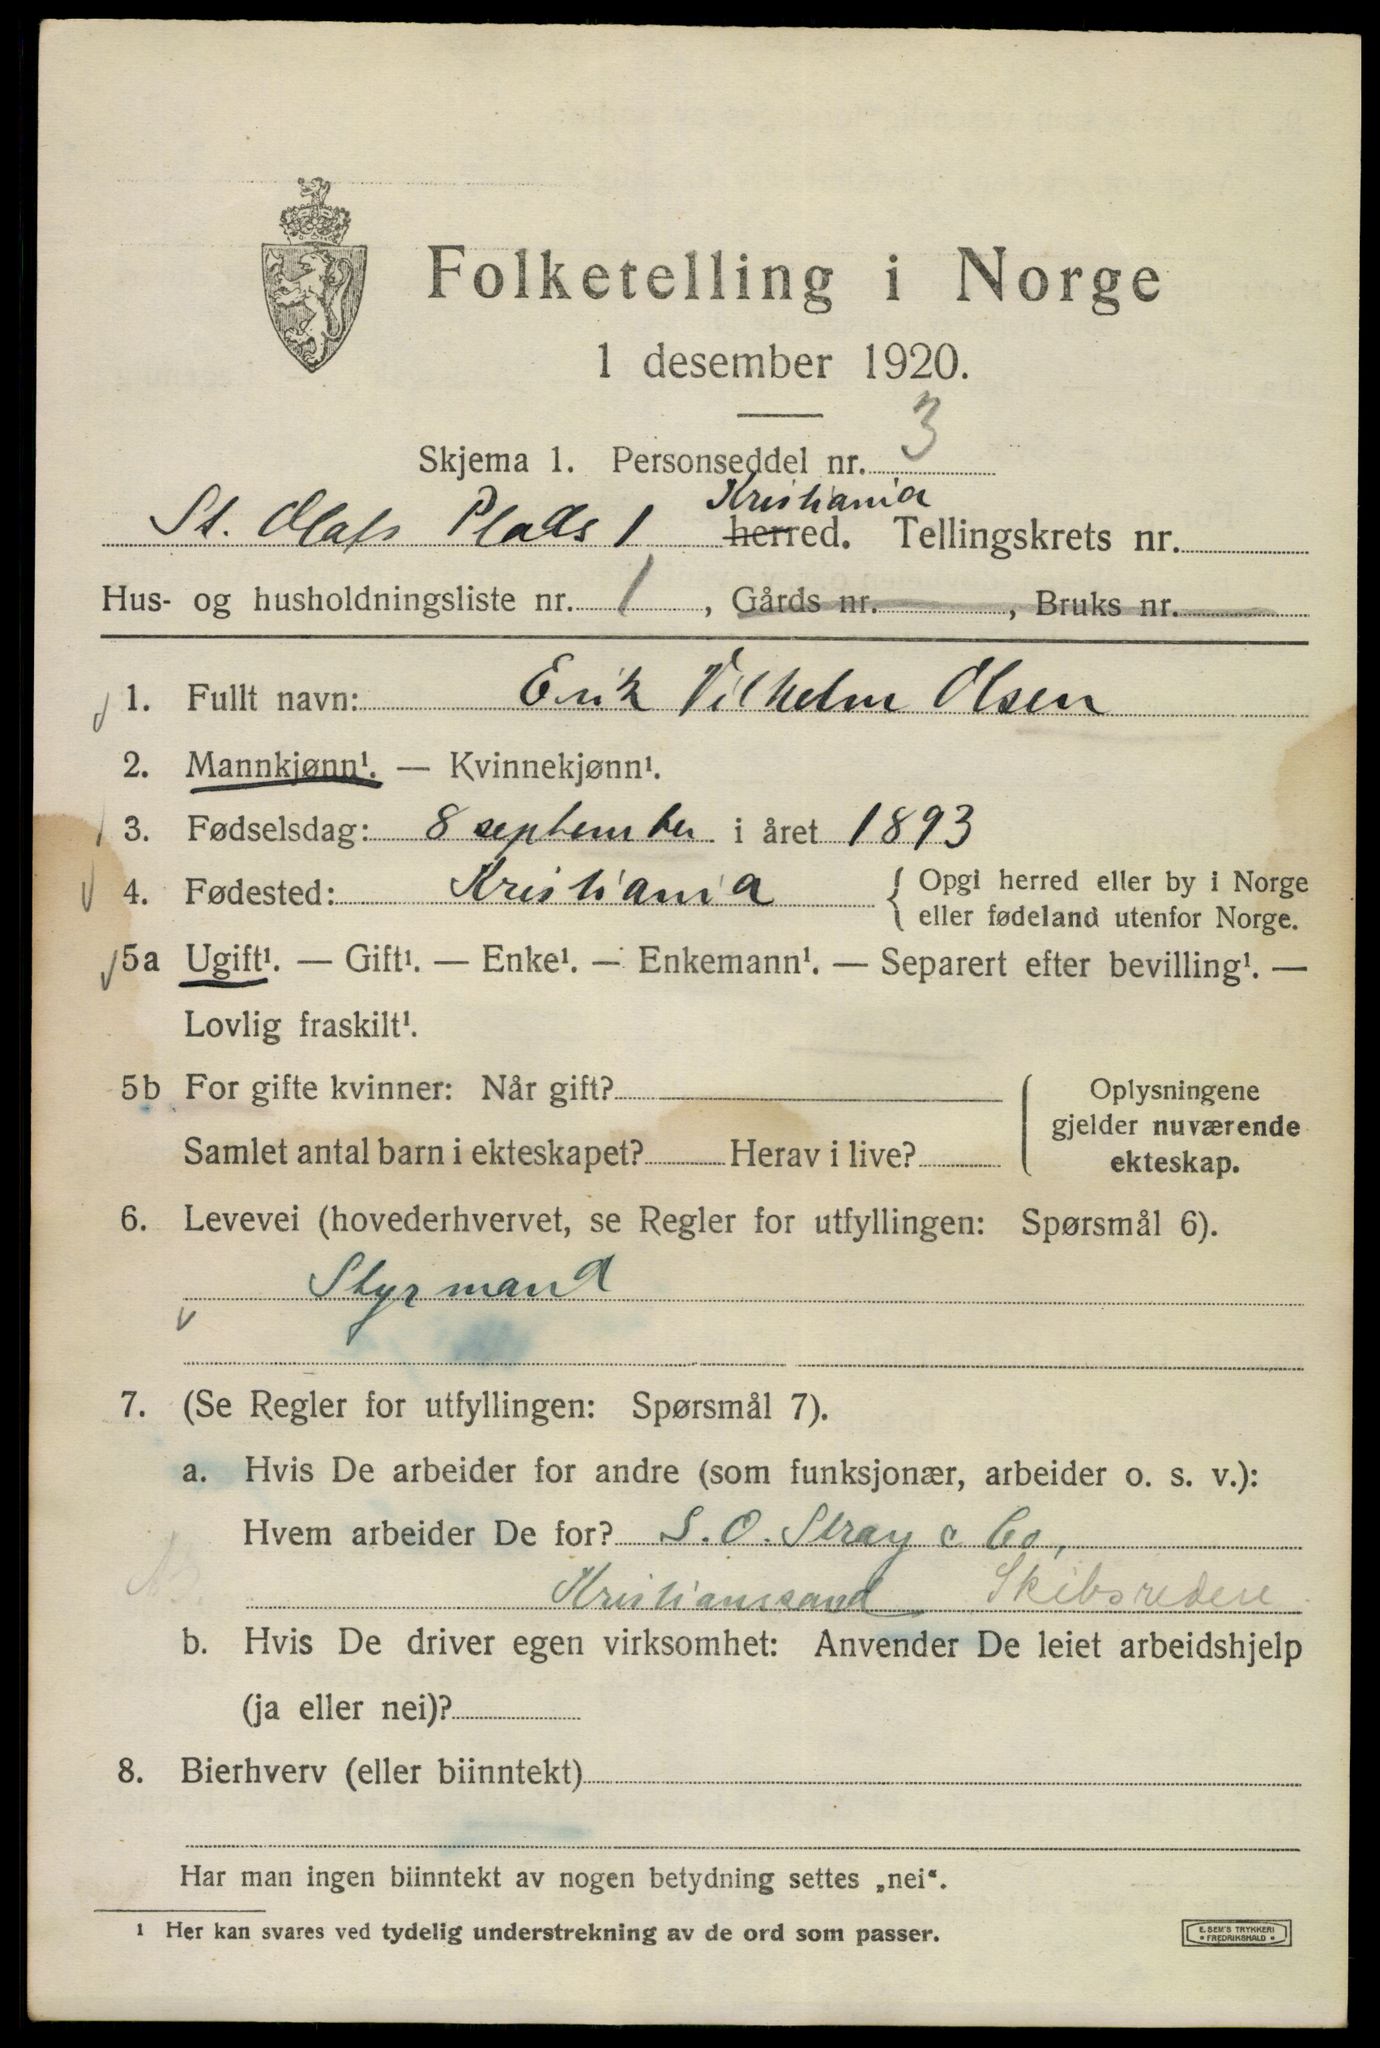 Folketelling i Norge
1 desember 1920.
Skjema 1. Personseddel nr. 3
St. Olafs Plads 1 Kristiania herred. Tellingskrets nr.
Hus- og husholdningsliste nr. 1, Gårds nr. , Bruks nr.
1. Fullt navn: Erik Vilhelm Olsen
2. Mannkjønn¹. — Kvinnekjønn¹.
3. Fødselsdag: 8 september i året 1893
4. Fødested: Kristiania { Opgi herred eller by i Norge
eller fødeland utenfor Norge.
5a Ugift¹. — Gift¹. — Enke¹. — Enkemann¹. — Separert efter bevilling¹. —
Lovlig fraskilt¹.
5b For gifte kvinner: Når gift?
Samlet antal barn i ekteskapet? Herav i live?
Oplysningene
gjelder nuværende
ekteskap.
6. Levevei (hovederhvervet, se Regler for utfyllingen: Spørsmål 6).
Styrmand
7. (Se Regler for utfyllingen: Spørsmål 7).
a. Hvis De arbeider for andre (som funksjonær, arbeider o. s. v.):
Hvem arbeider De for? S. O. Stray & Co,
Kristianssand Skibsredere
b. Hvis De driver egen virksomhet: Anvender De leiet arbeidshjelp
(ja eller nei)?
8. Bierhverv (eller biinntekt)
Har man ingen biinntekt av nogen betydning settes „nei“.
1 Her kan svares ved tydelig understrekning av de ord som passer.
E. SEM'S TRYKKERI
FREDRIKSHALD